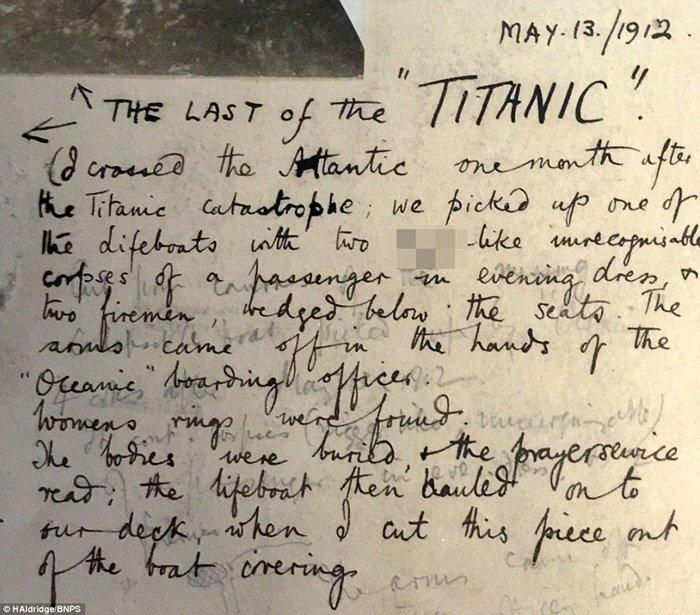 MAY. 13./1912.
THE LAST of the "TITANIC".
(I crossed the Atlantic one month after
the Titanic catastrophe; we picked up one of
the lifeboats with two -like unrecognisable
corpses of a passenger in evening dress, &
two firemen, wedged below the seats. The
arms came off in the hands of the
"Oceanic" boarding officer.
Womens rings were found.
The bodies were buried, & the prayerservice
read; the lifeboat then hauled on to
our deck, when I cut this piece out
of the boat coverings
© HAldridge/BNPS